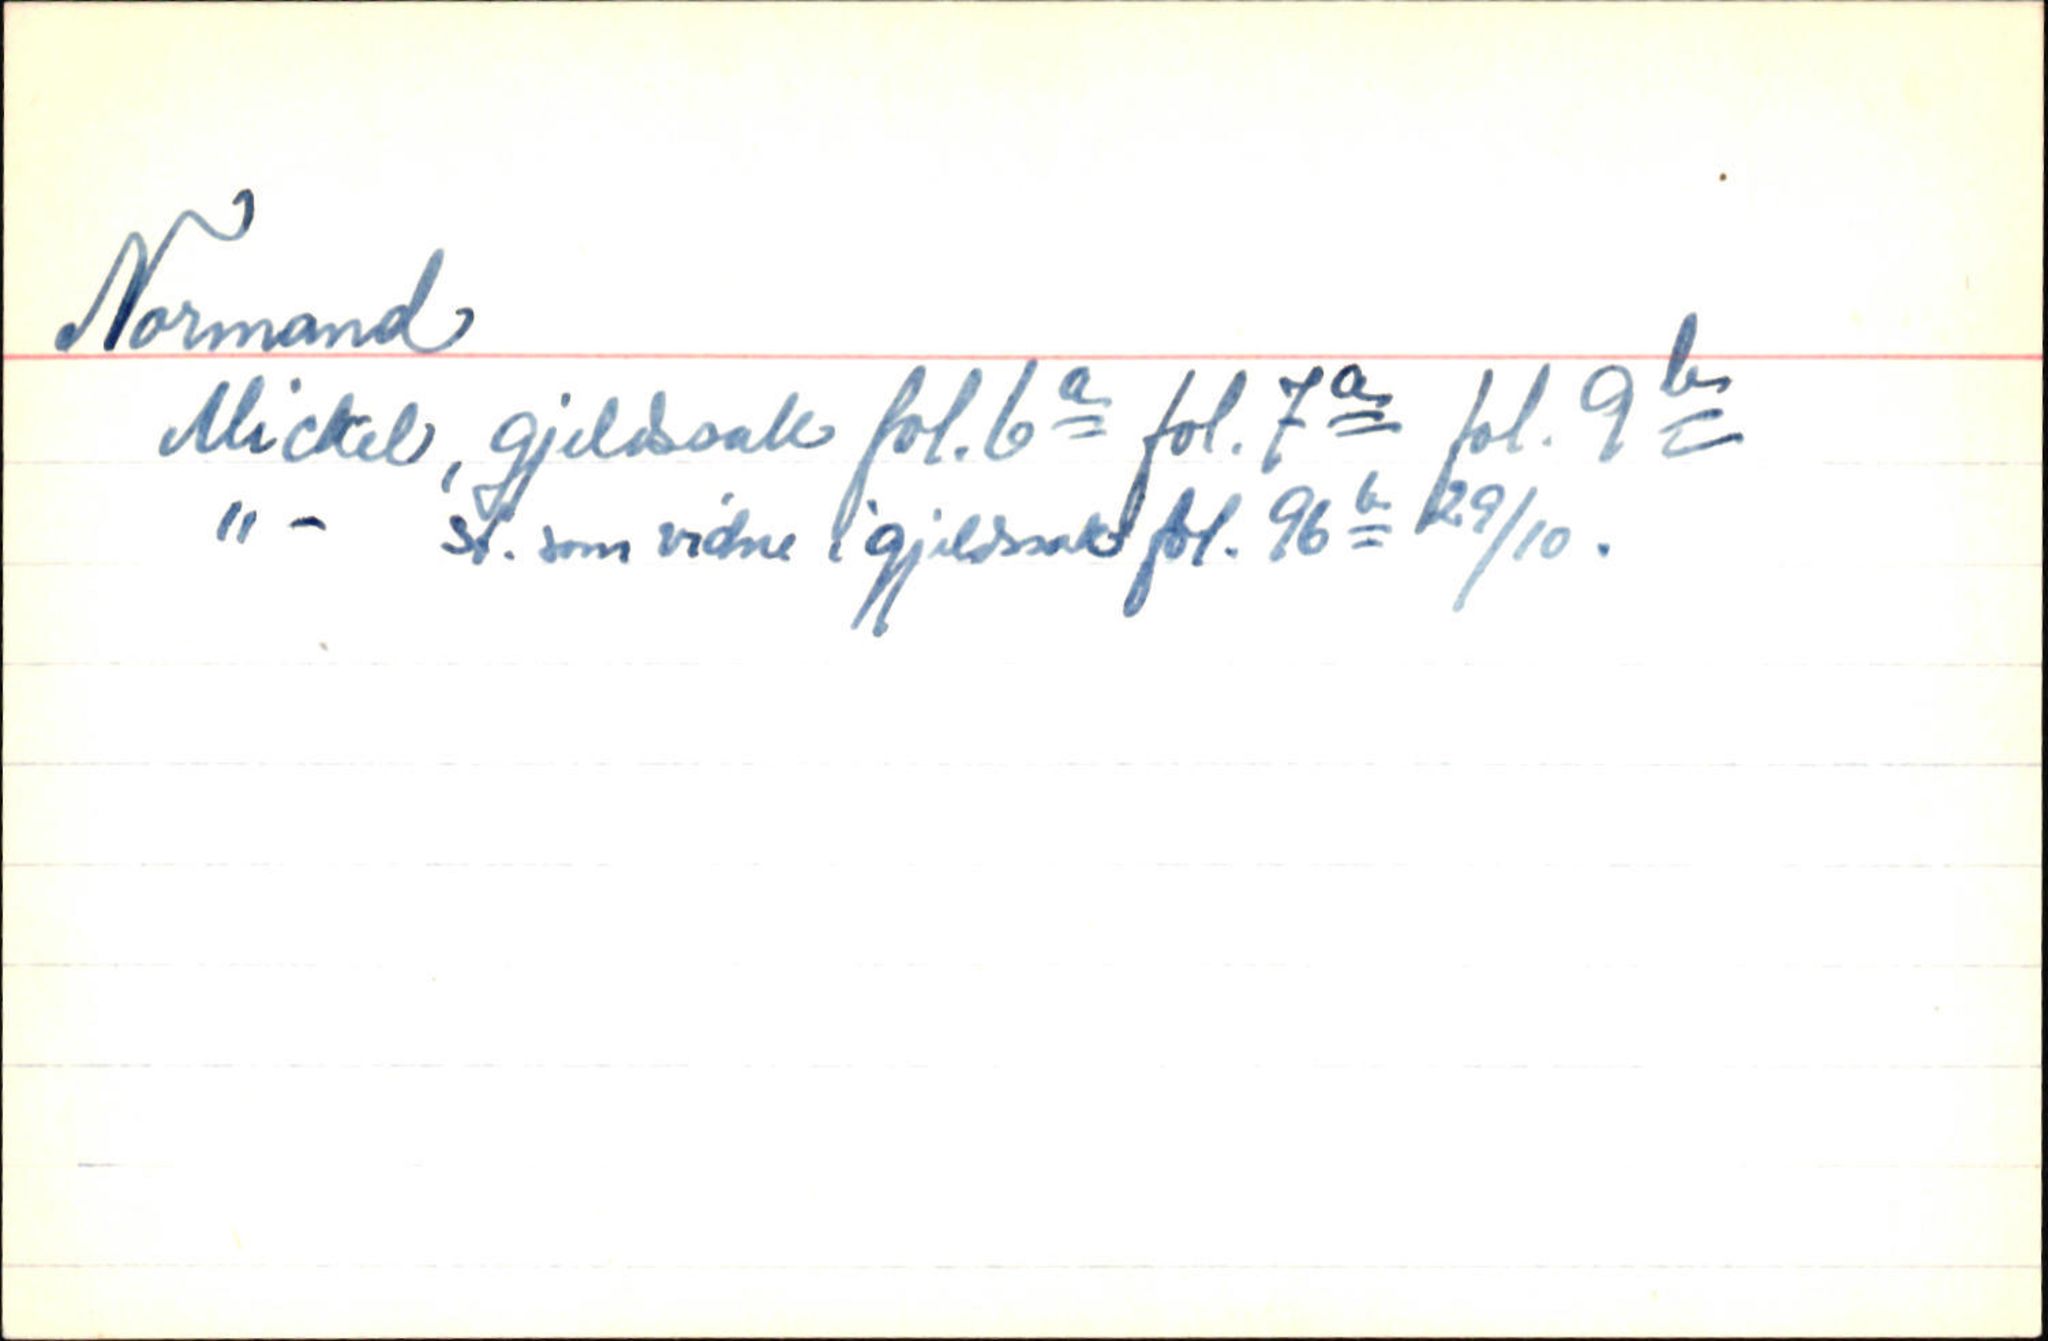 Normand
Mickel, gjeldssak fol. 6a fol. 7a fol. 9b
" - st. som vidne i gjeldssak fol. 96b 29/10.